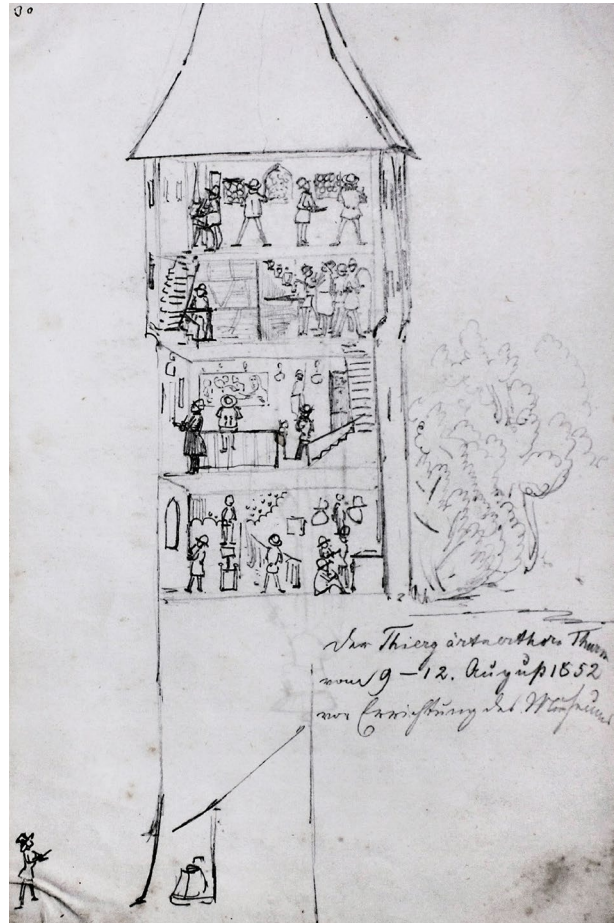 30
Der Thiergärtnerthor Thurm
vom 9 – 12. August 1852
vor Errichtung des Museums